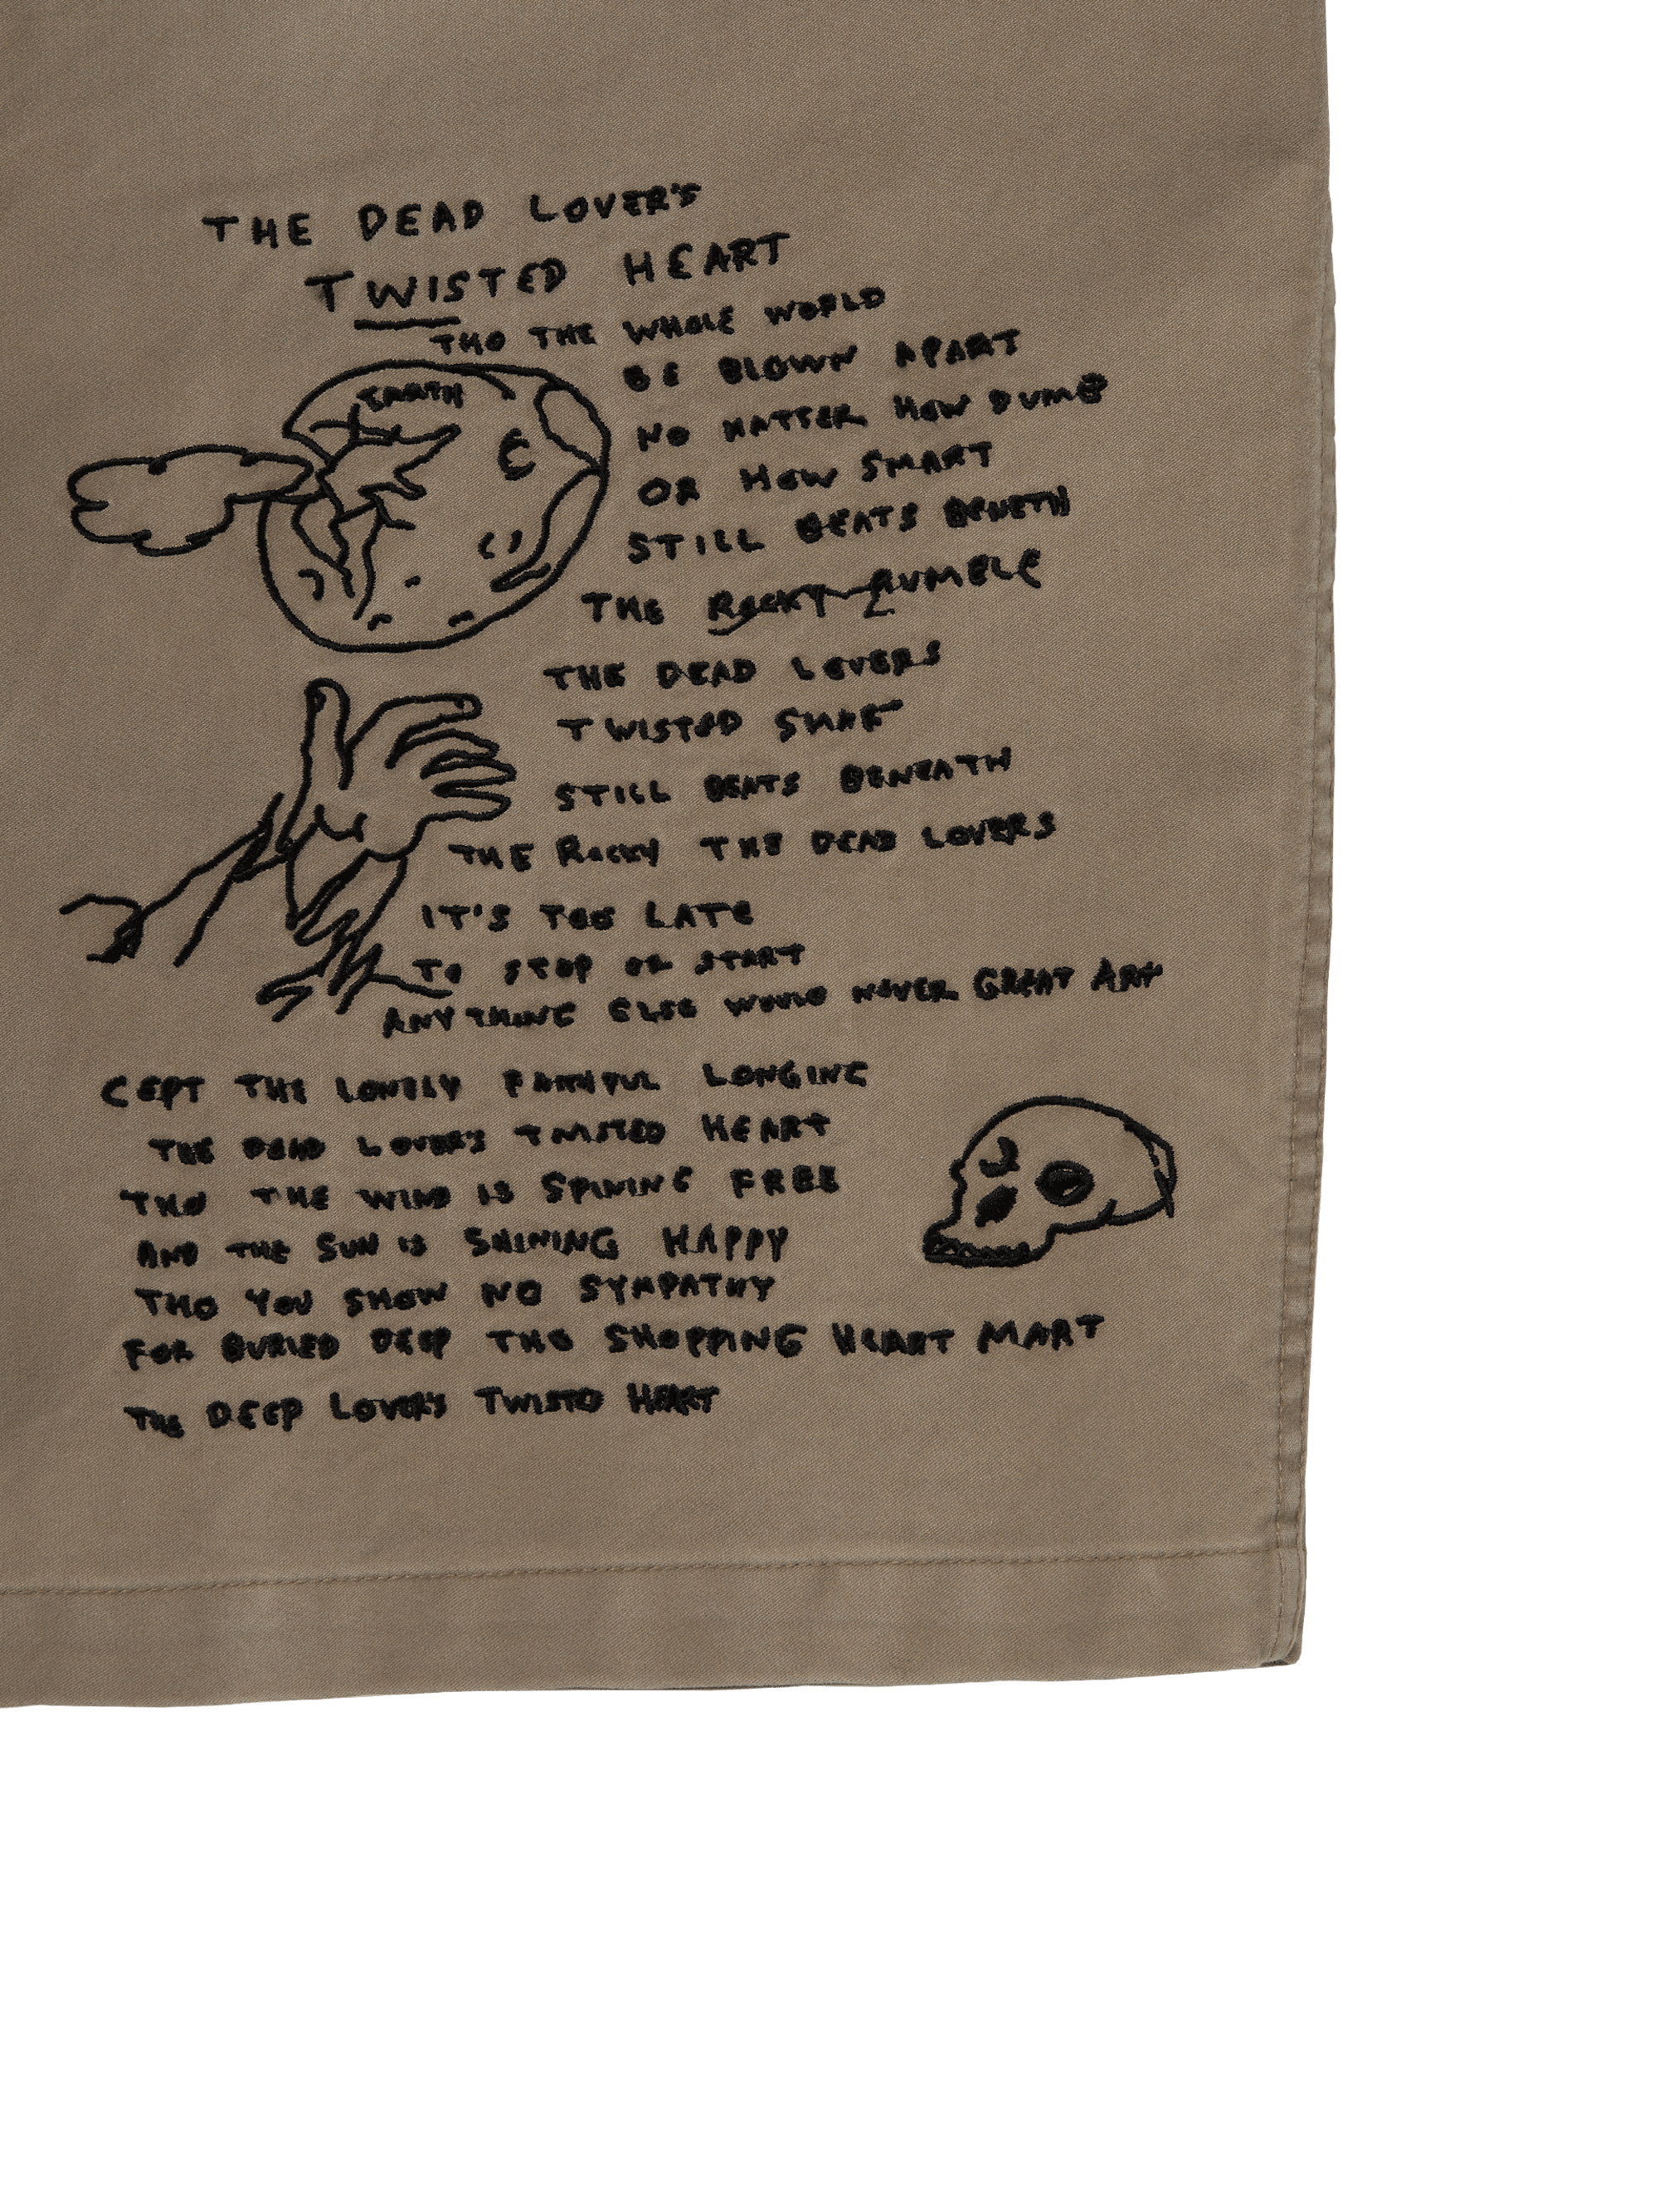 THE DEAD LOVER'S
TWISTED HEART
THO THE WHOLE WORLD
BE BLOWN APART
EARTH
NO MATTER HOW DUMB
OR HOW SMART
STILL BEATS BENETH
THE ROCKY RUMBLE
THE DEAD LOVERS
TWISTED
STILL BEATS BENEATH
THE ROCKY THE DEAD LOVERS
IT'S TOO LATE
TO STOP OR START
ANYTHING ELSE WOULD NEVER GREAT ART
CEPT THE LONELY FAITHFUL LONGING
THE DEAD LOVER'S TWISTED HEART
THO THE WIND IS SPINING FREE
AND THE SUN IS SHINING HAPPY
THO YOU SHOW NO SYMPATHY
FOR BURIED DEEP THO SHOPPING HEART MART
THE DEEP LOVER'S TWISTD HEART